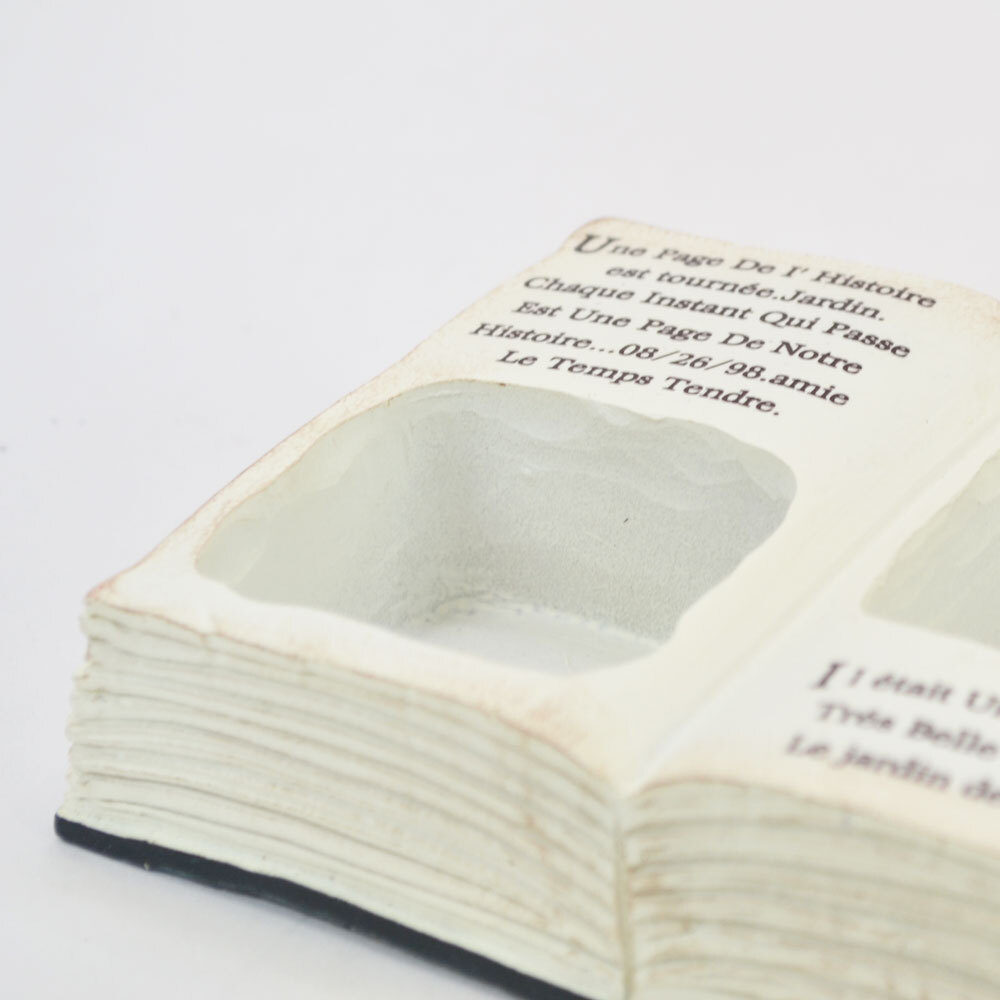 Une Page De l' Histoire
est tournée.Jardin.
Chaque Instant Qui Passe
Est Une Page De Notre
Histoire...08/26/98.amie
Le Temps Tendre.
Il était
Trés Belle
Le jardin